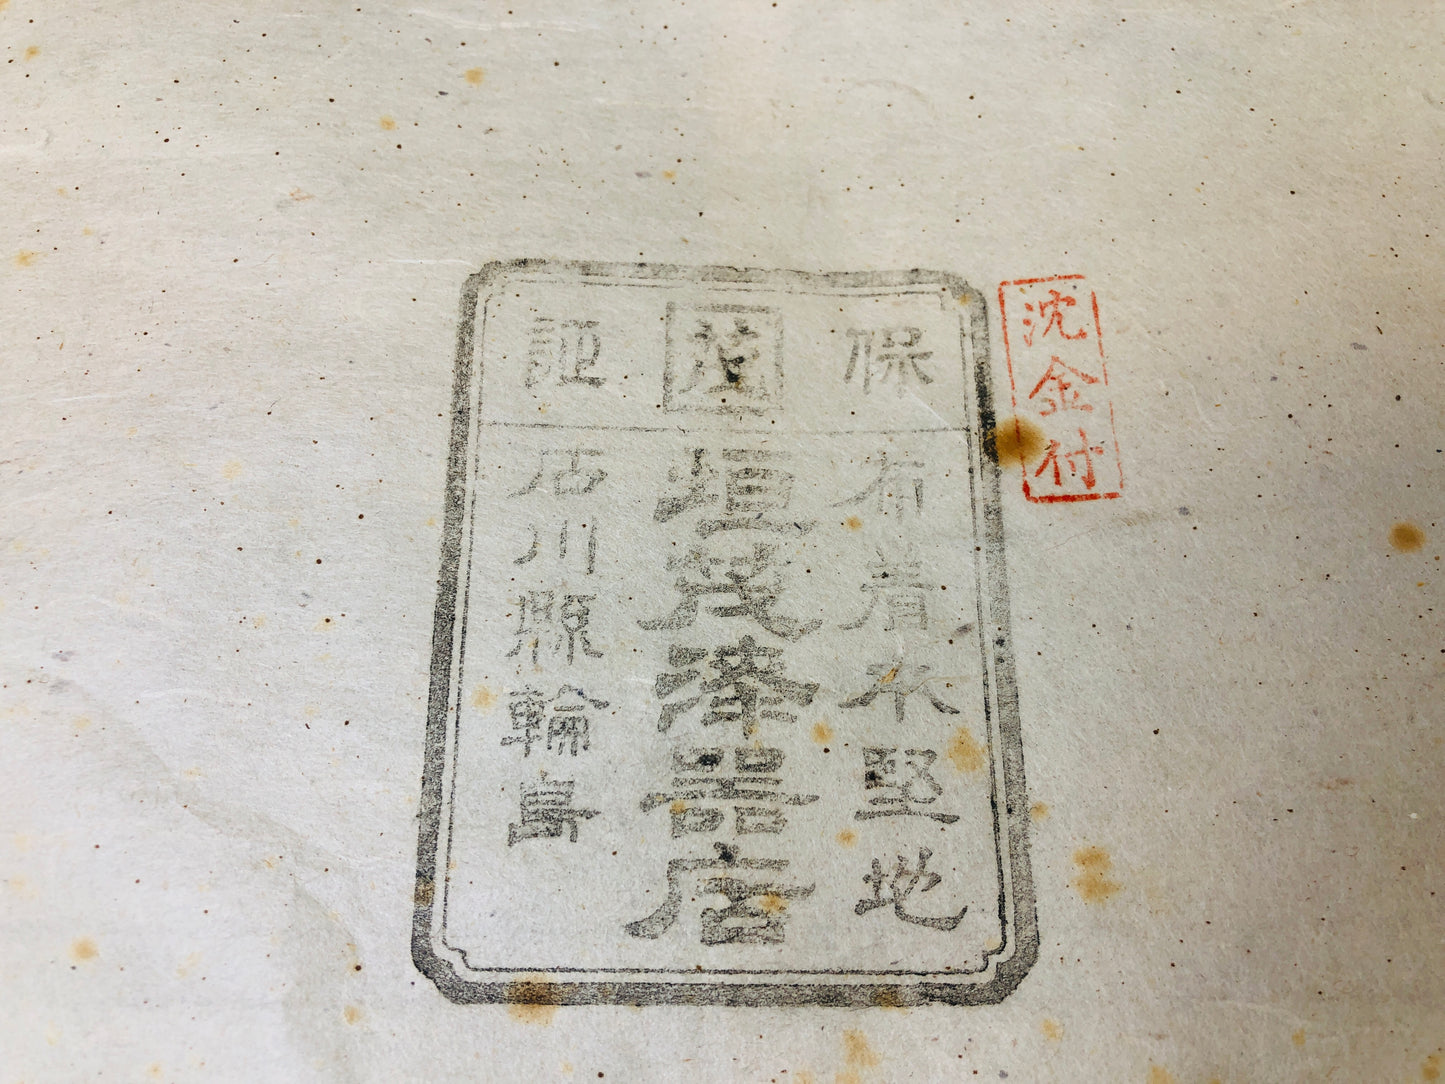 沈金付
保 茂 証
布着本堅地
垣茂漆器店
石川縣輪島